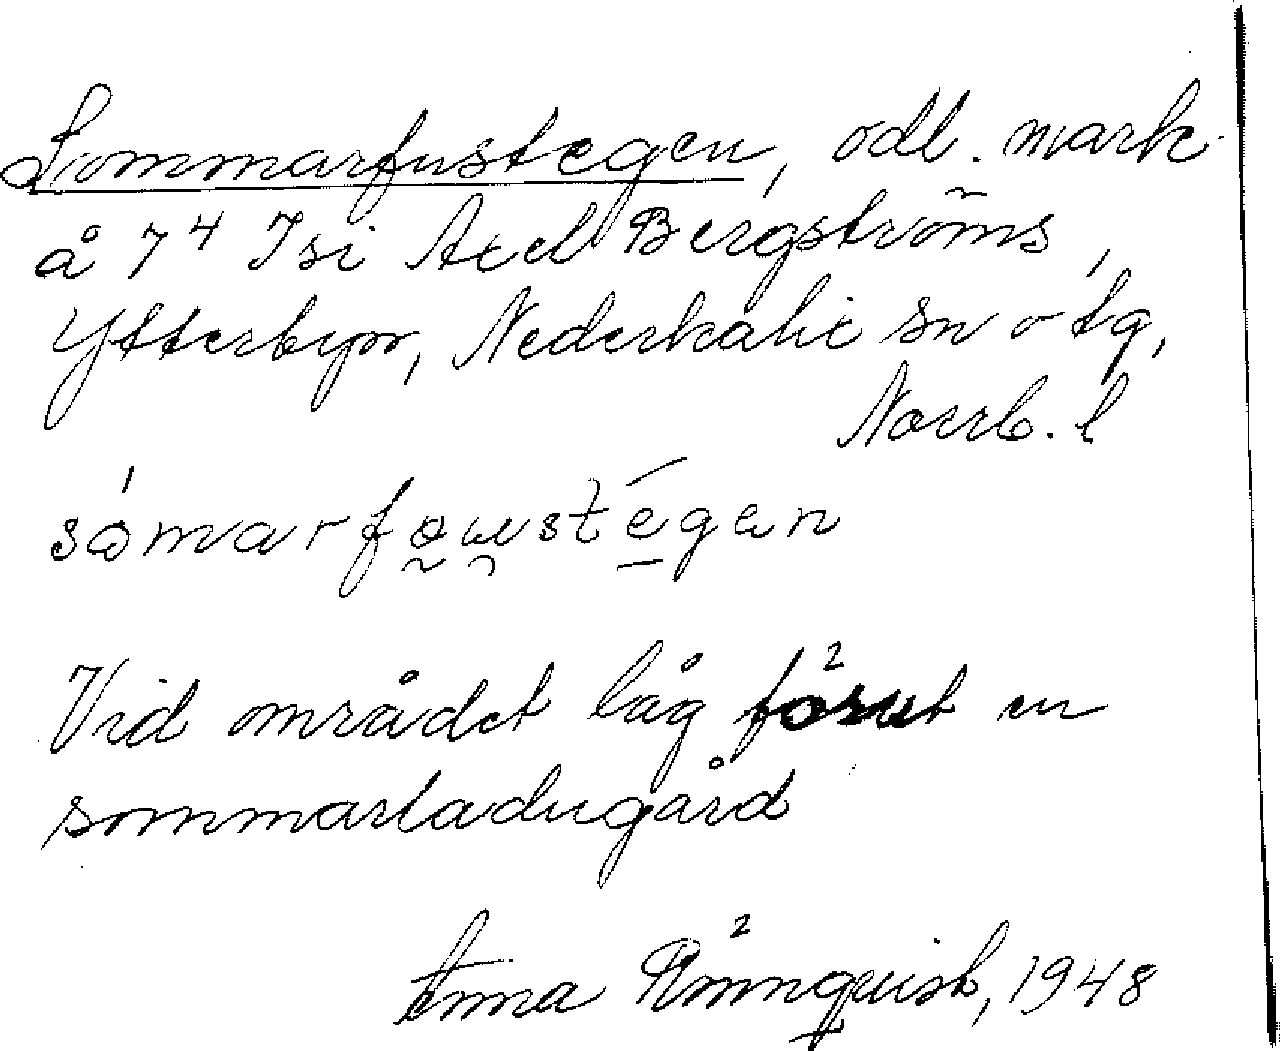 Sommarfustegen, odl. mark
å 7⁴ Isi Axel Bergströms,
Ytterbyn, Nederkalix sn o tg,
Norrb. l
sómarfo̰u̯stégen
Vid området låg förut en
sommarladugård
Anna Rönnqvist, 1948